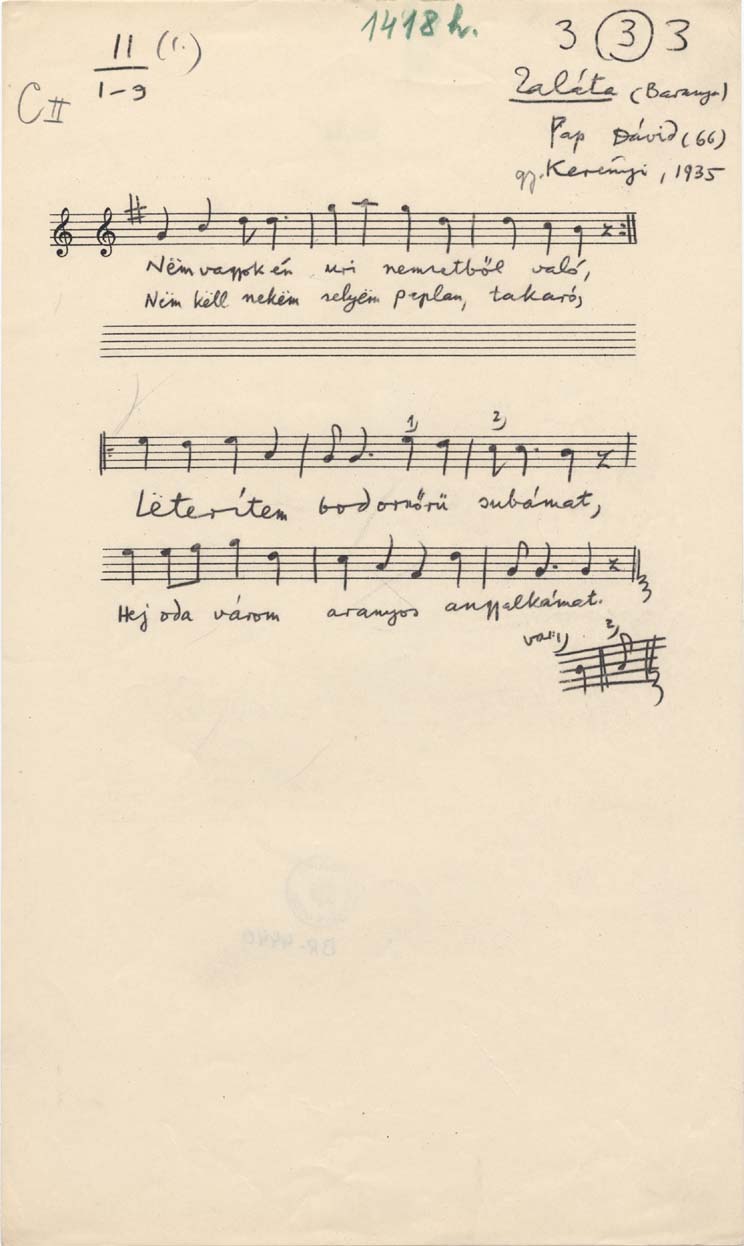 1418 h.
II (1.)
1-9
CII
3 3 3
Zaláta (Baranya)
Pap Dávid (66)
gy. Kerényi, 1935
Nëm vagyok én uri nemzetből való,
Nëm këll nekëm selyëm paplan, takaró,
1) 2)
Lëterítem bodorszőrű subámat,
Hej oda várom aranyos angyalkámat.
var: 1) 2)
BR-